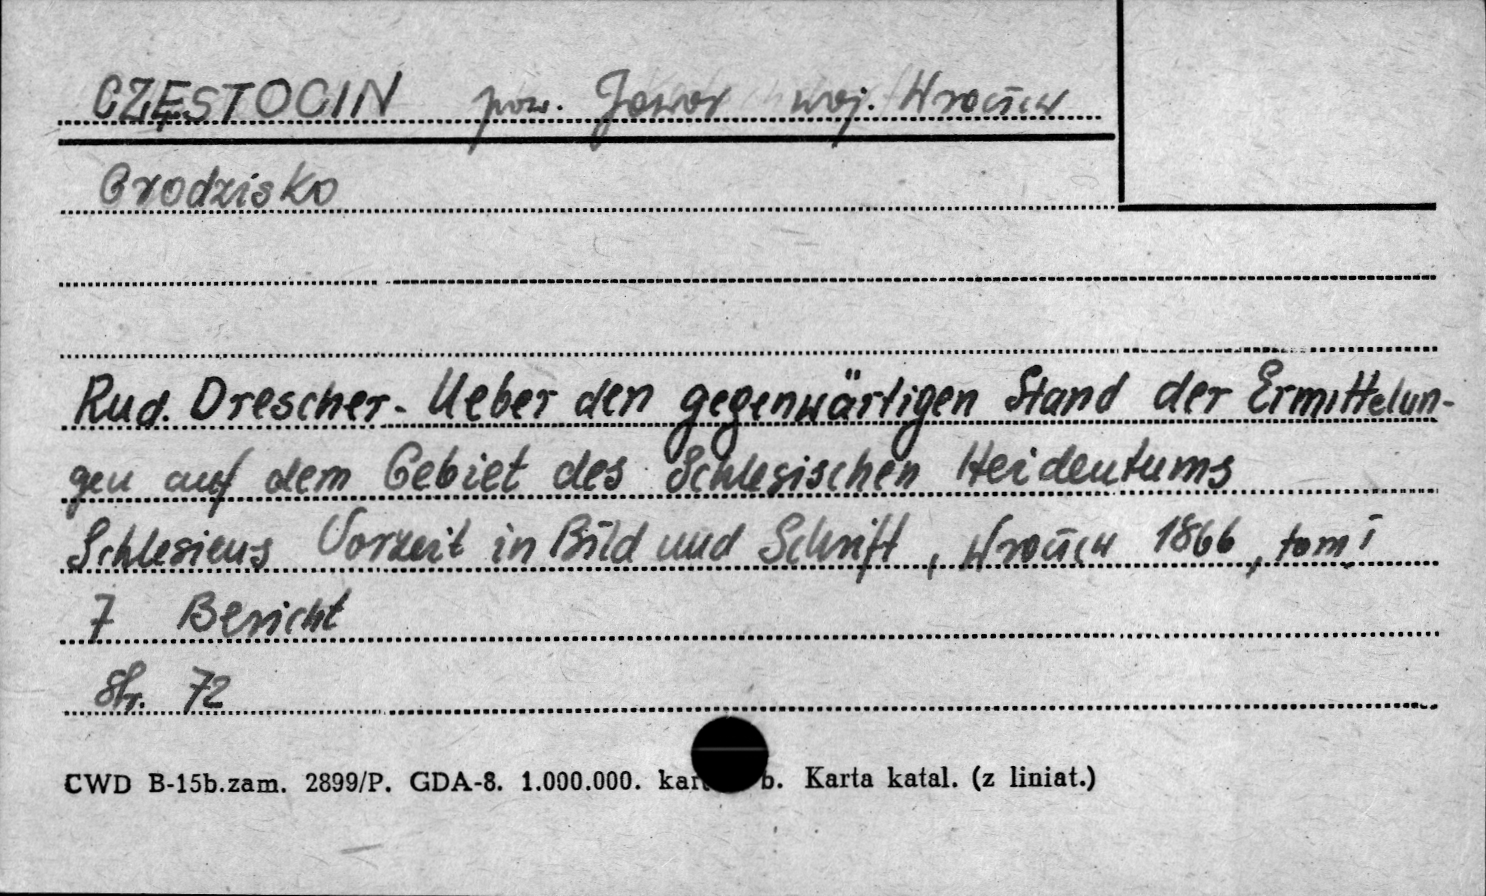 CZĘSTOCIN pow. Jawor woj. Wrocław
Grodzisko
Rud. Drescher - Ueber den gegenwärtigen Stand der Ermittelun-
gen auf dem Gebiet des Schlesischen Heidentums
Schlesiens Vorzeit in Bild und Schrift, Wrocław 1866, tom I
7 Bericht
Str. 72
CWD B-15b.zam. 2899/P. GDA-8. 1.000.000. b. Karta katal. (z liniat.)